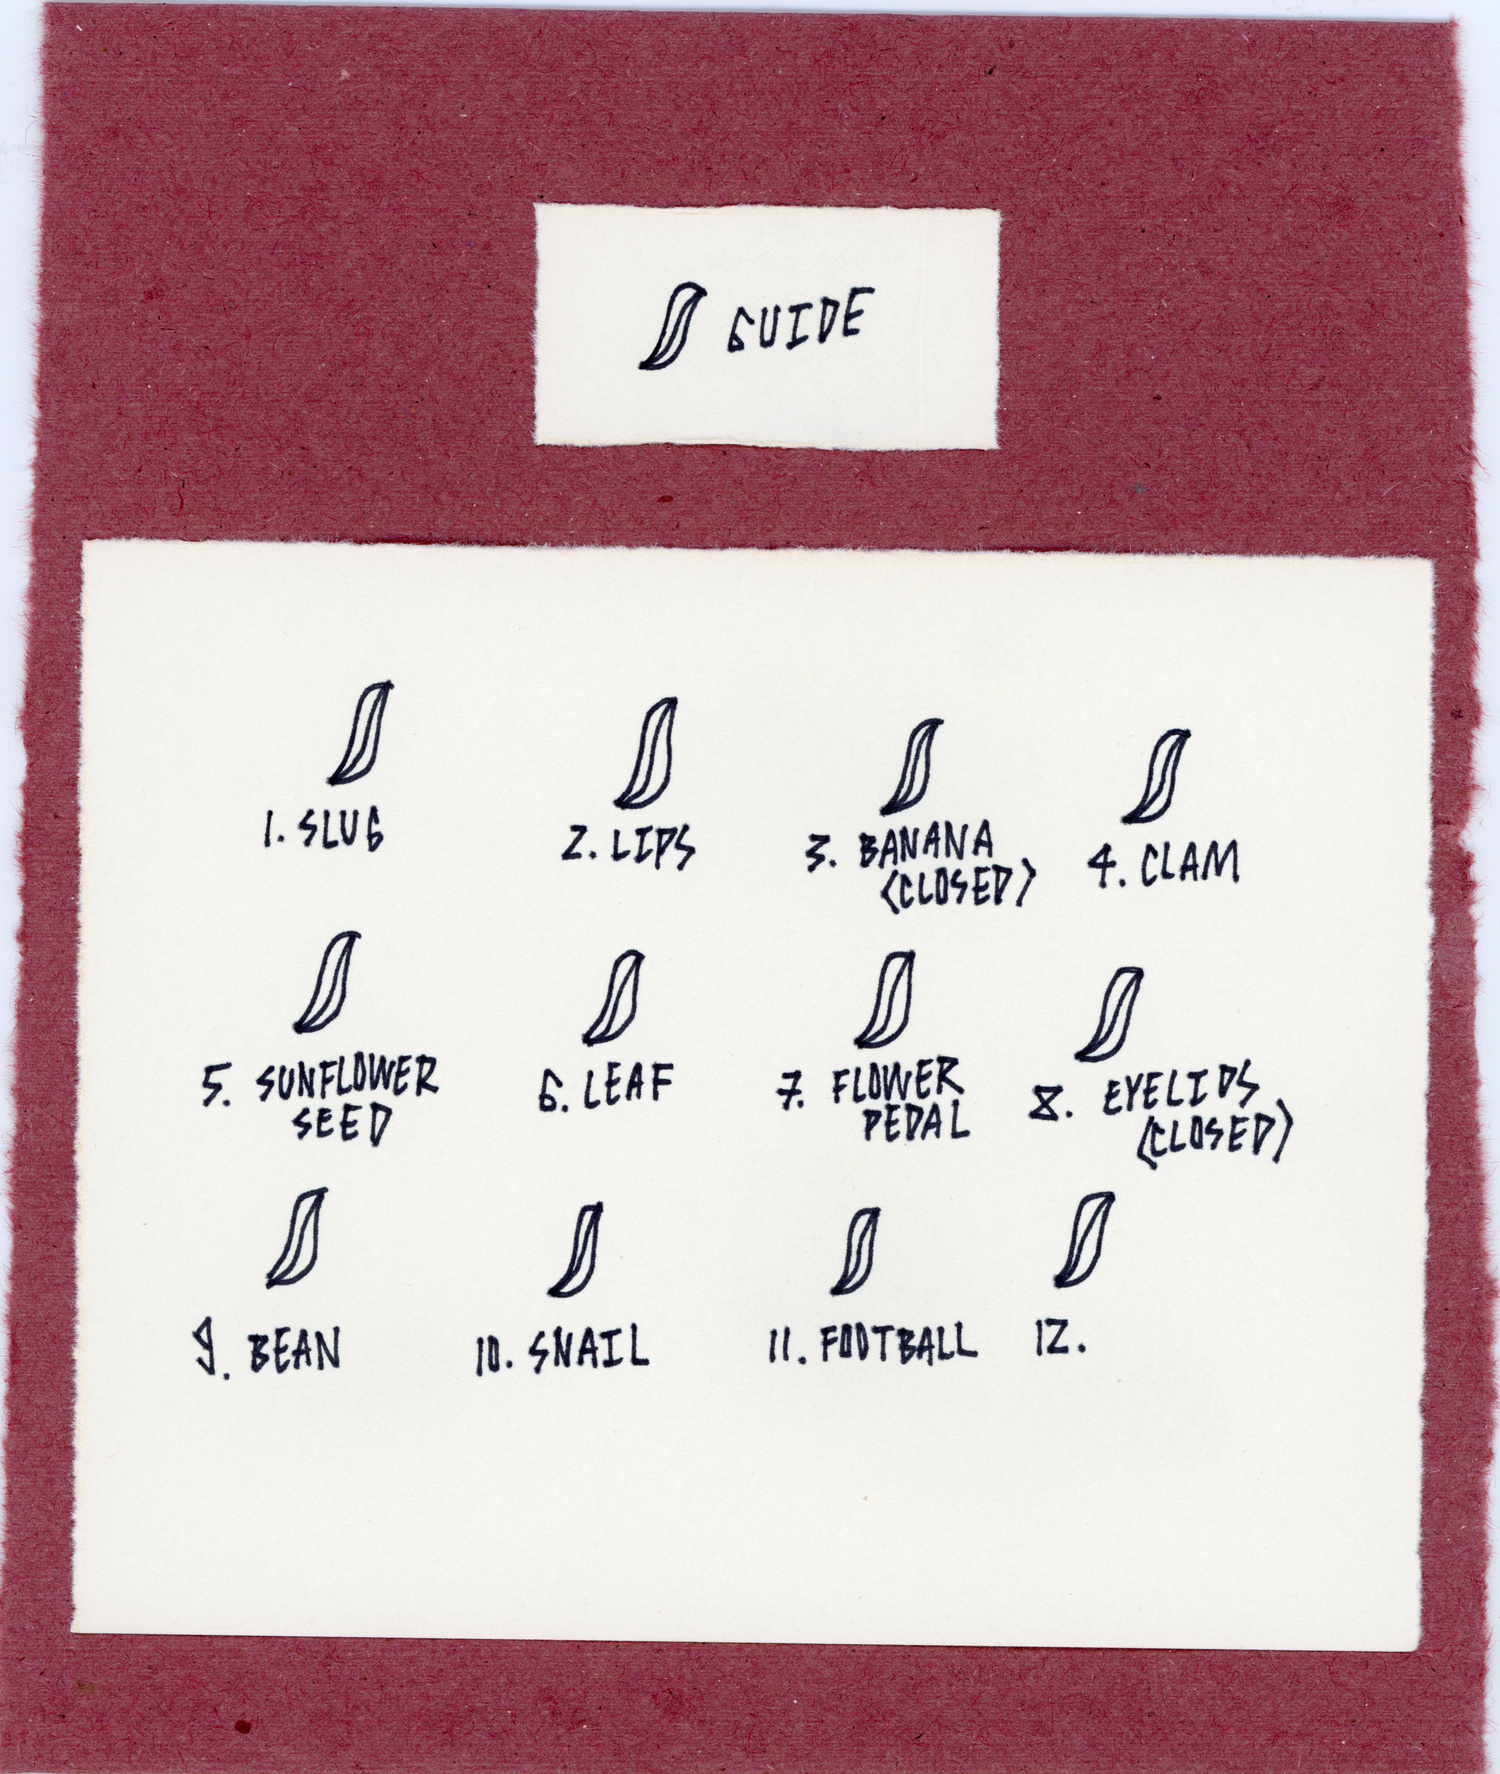 GUIDE
1. SLUG
2. LIPS
3. BANANA
(CLOSED)
4. CLAM
5. SUNFLOWER
SEED
6. LEAF
7. FLOWER
PEDAL
8. EYELIDS
(CLOSED)
9. BEAN
10. SNAIL
11. FOOTBALL
12.